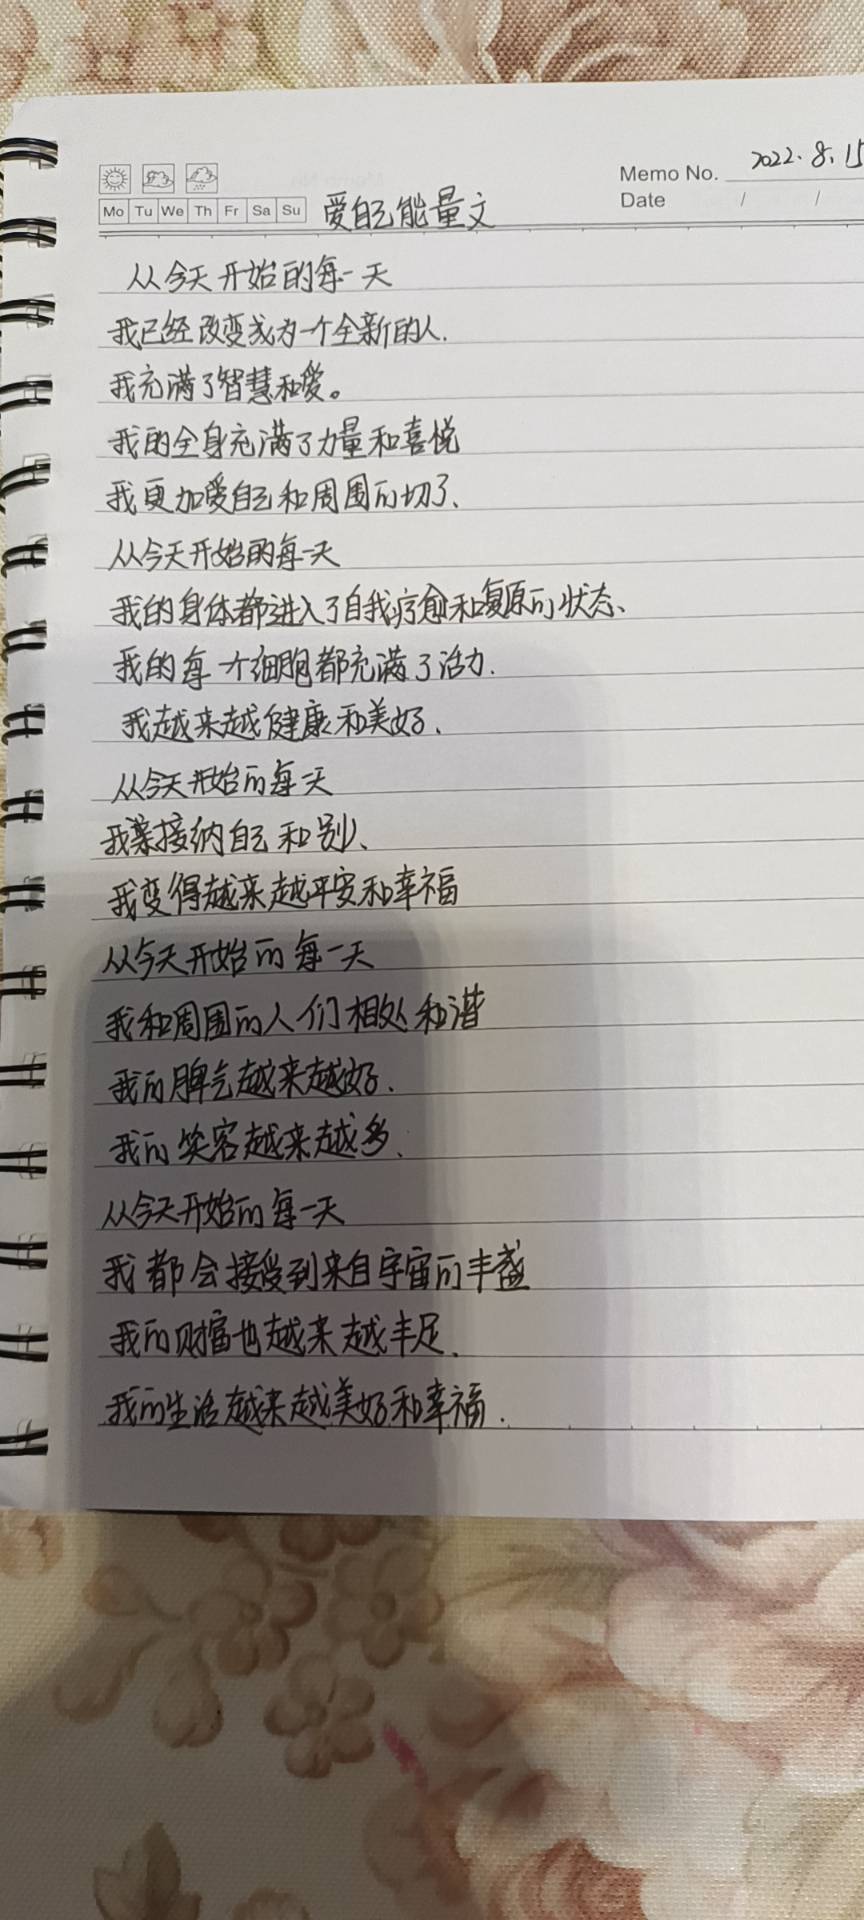 Memo No. 2022.8.15
Date / /
Mo Tu We Th Fr Sa Su
爱自己能量文
从今天开始的每一天
我已经改变成为一个全新的人.
我充满了智慧和爱。
我的全身充满了力量和喜悦
我更加爱自己和周围的切了、
从今天开始的每一天
我的身体都进入了自我疗愈和复原的状态、
我的每一个细胞都充满了活力.
我越来越健康和美好.
从今天开始的每一天
我接纳自己和别、
我变得越来越平安和幸福
从今天开始的每一天
我和周围的人们相处和谐
我的脾气越来越好.
我的笑容越来越多.
从今天开始的每一天
我都会接受到来自宇宙的丰盛
我的财富也越来越丰足.
我的生活越来越美好和幸福.